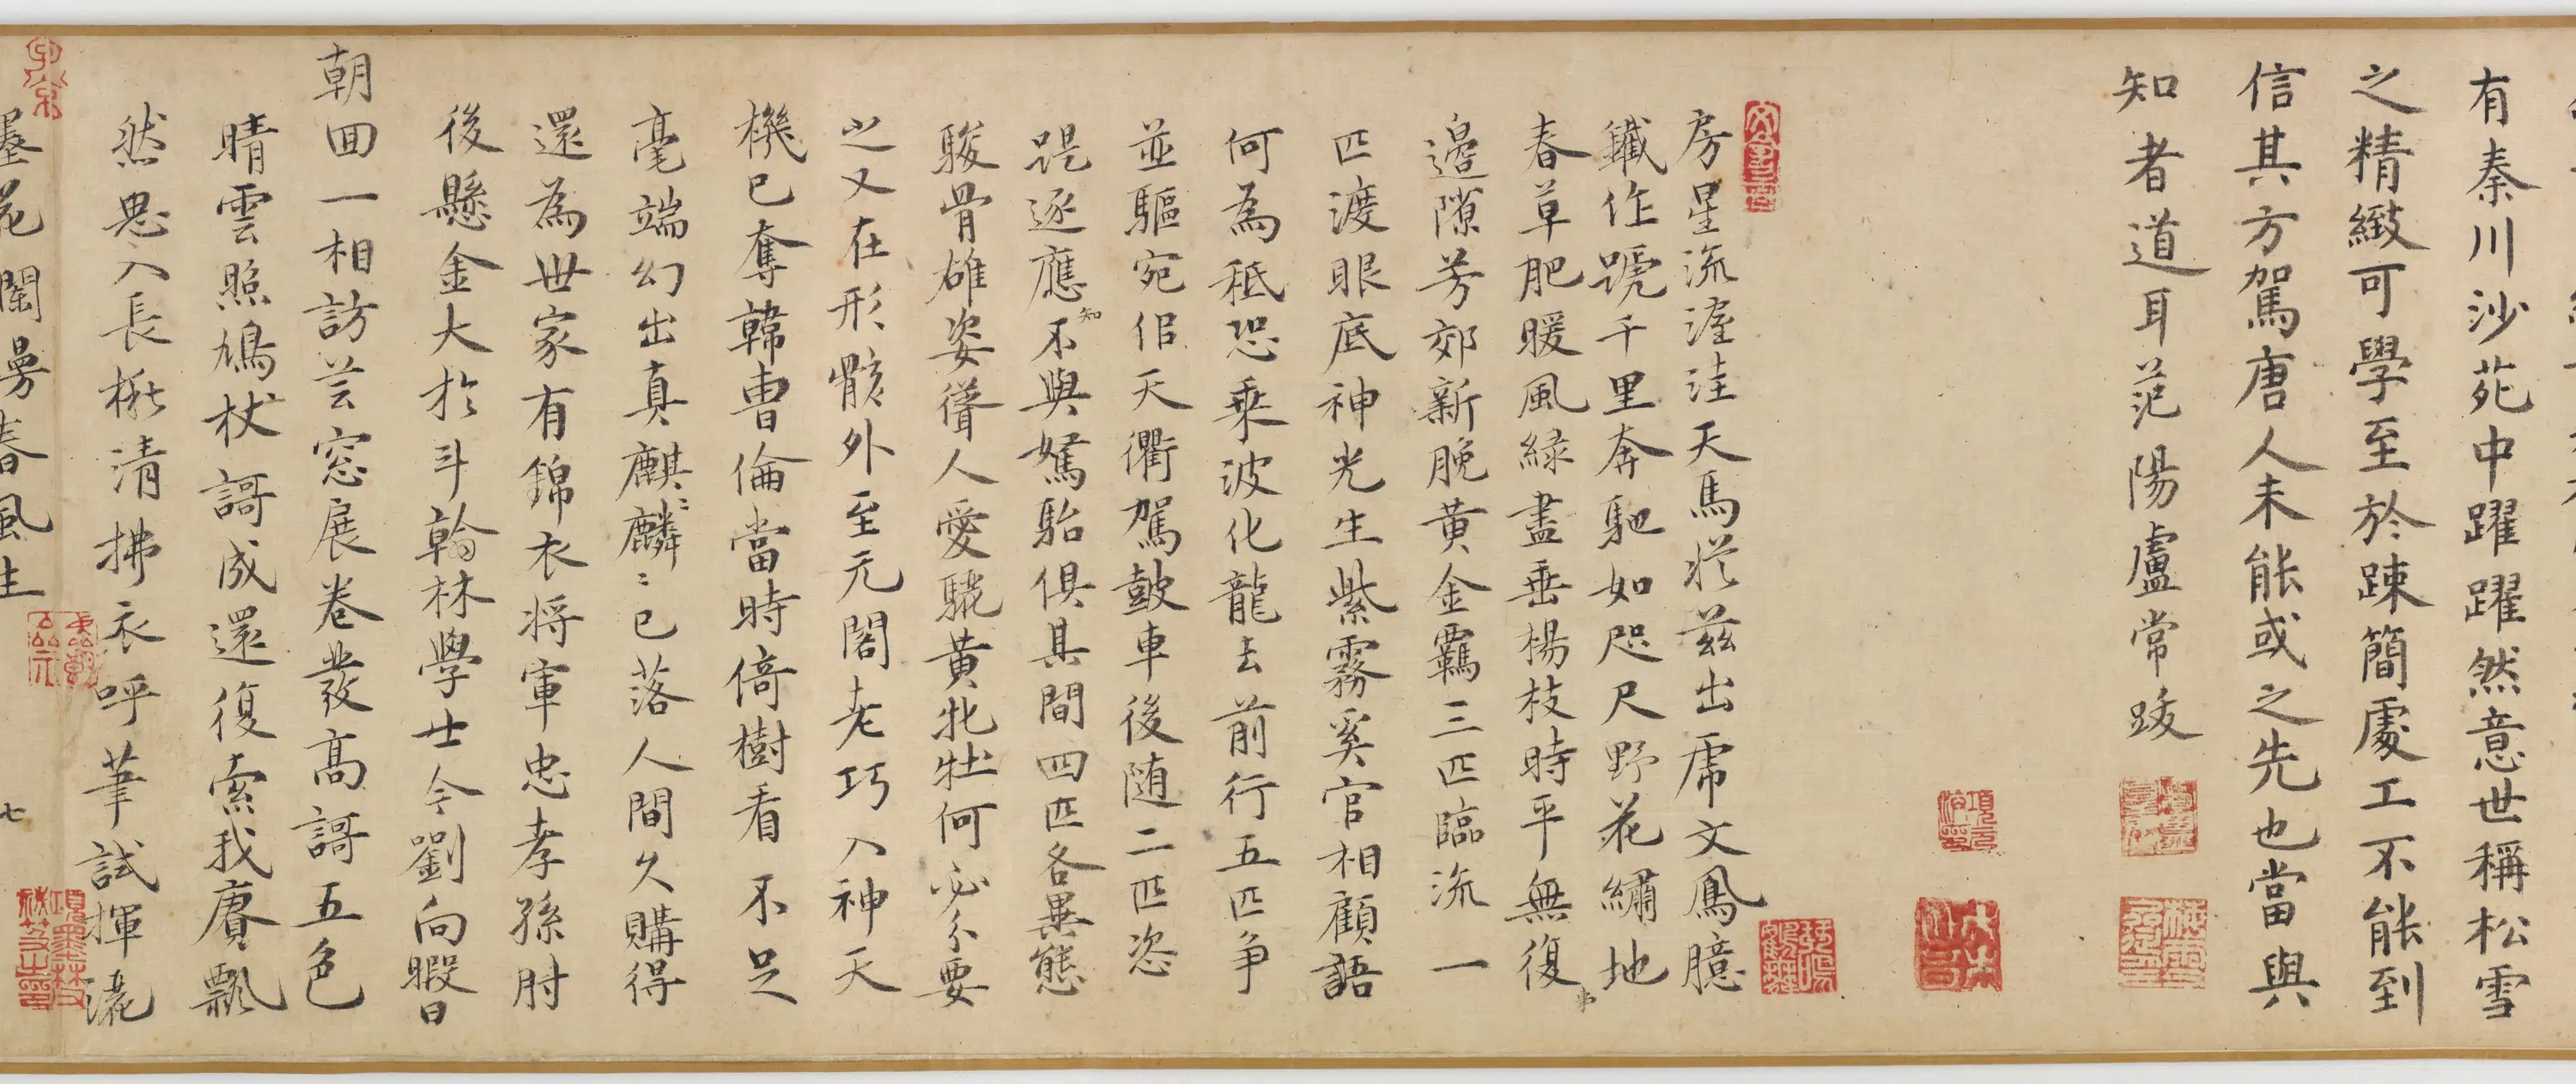 有秦川沙苑中躍躍然意世稱松雪
之精緻可學至於踈簡處工不能到
信其方駕唐人未能或之先也當與
知者道耳范陽盧常跋
房星流渥洼天馬從茲出虎文鳳臆
鐵作蹄千里奔馳如咫尺野花繡地
春草肥暖風綠盡垂楊枝時平無復
事
邊隙芳郊新脫黃金羈三匹臨流一
匹渡眼底神光生紫霧奚官相顧語
何為秪恐乘波化龍去前行五匹爭
並驅宛佀天衢駕鼓車後随二匹恣
踶逐應不與駑駘俱其間四匹各異態
知
駿骨雄姿聳人愛驪黃牝牡何必分要
之又在形骸外至元閣老巧入神天
機已奪韓曹倫當時倚樹看不足
毫端幻出真麒麟麒麟已落人間久購得
還為世家有錦衣将軍忠孝孫肘
後懸金大於斗翰林學士令劉向暇日
朝回一相訪芸窓展卷發高謌五色
晴雲照鳩杖謌成還復索我賡飄
然思入長楸清拂衣呼筆試揮灑
墨花闌旻春風生
七